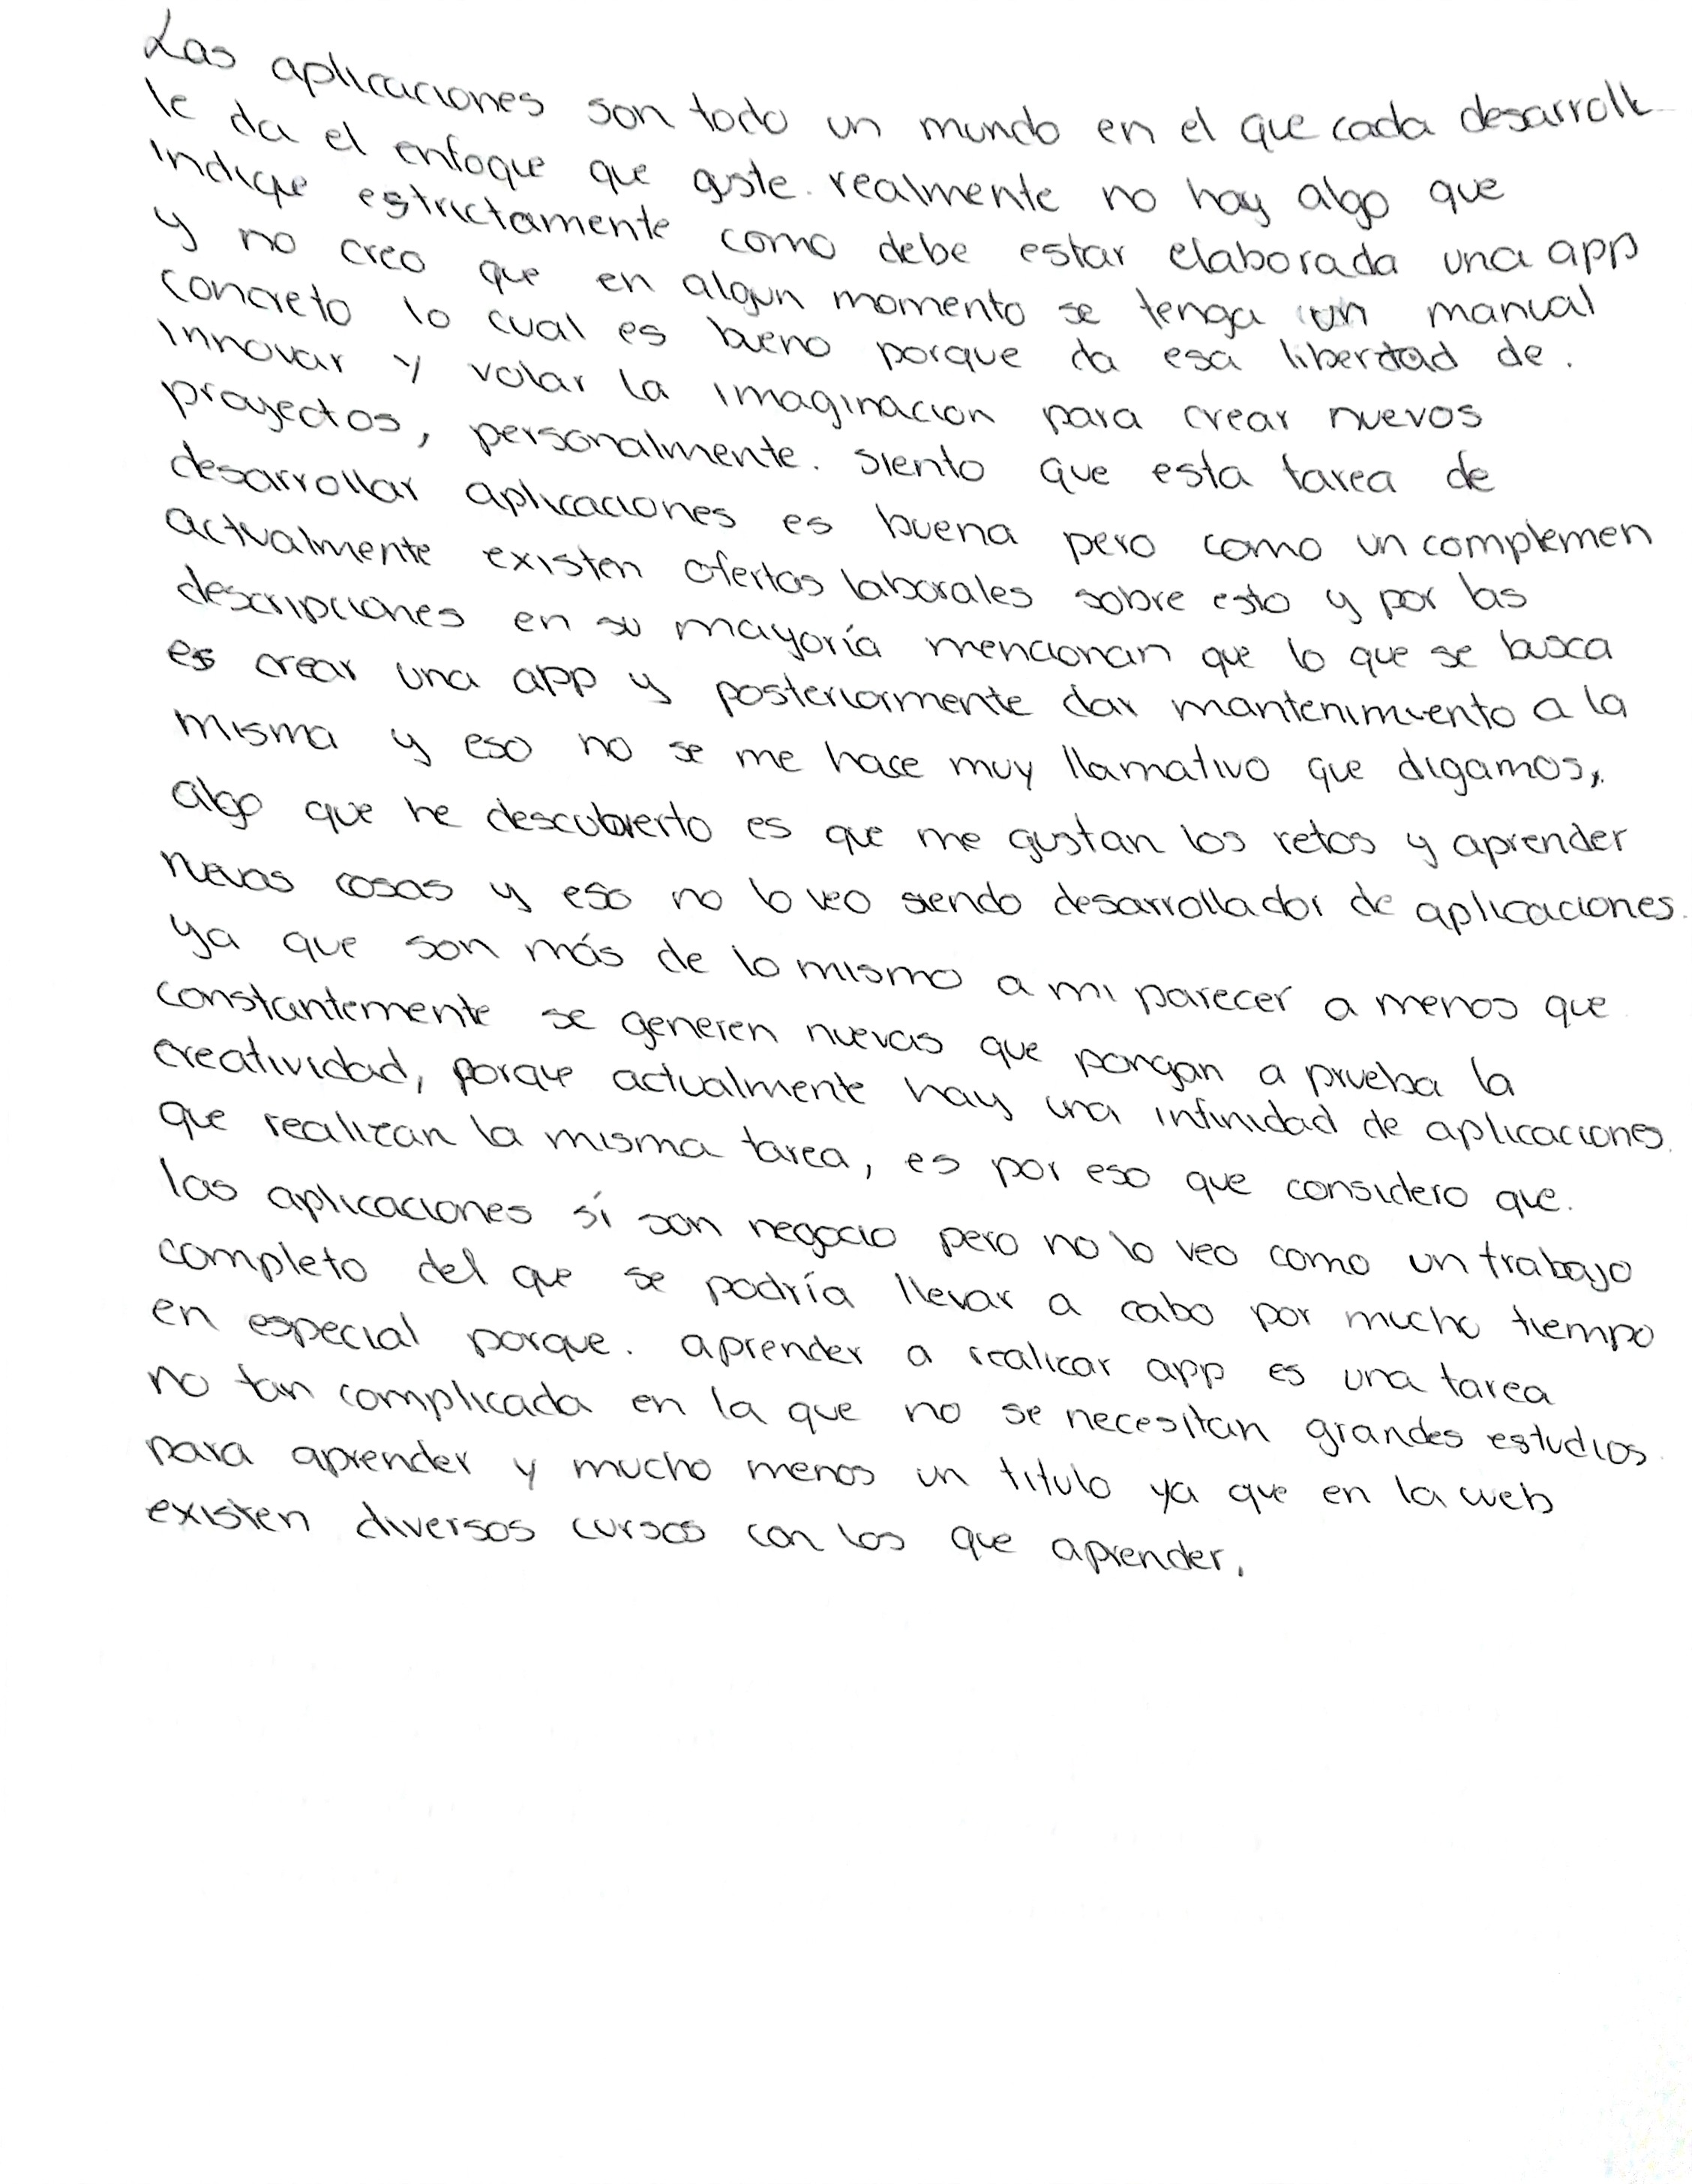 Las aplicaciones son todo un mundo en el que cada desarroll
le da el enfoque que guste. realmente no hay algo que
indique estrictamente como debe estar elaborada una app
y no creo que en algun momento se tenga un manual
concreto lo cual es bueno porque da esa libertad de.
innovar y volar la imaginacion para crear nuevos
proyectos, personalmente. siento que esta tarea de
desarrollar aplicaciones es buena pero como un complemen
actualmente existen ofertas laborales sobre esto y por las
descripciones en su mayoría mencionan que lo que se busca
es crear una app y posteriormente dar mantenimiento a la
misma y eso no se me hace muy llamativo que digamos,
algo que he descubierto es que me gustan los retos y aprender
nuevas cosas y eso no lo veo siendo desarrollador de aplicaciones.
ya que son más de lo mismo a mi parecer a menos que
constantemente se generen nuevas que pongan a prueba la
creatividad, porque actualmente hay una infinidad de aplicaciones.
que realizan la misma tarea, es por eso que considero que.
las aplicaciones sí son negocio pero no lo veo como un trabajo
completo del que se podría llevar a cabo por mucho tiempo
en especial porque. aprender a realizar app es una tarea
no tan complicada en la que no se necesitan grandes estudios
para aprender y mucho menos un titulo ya que en la web
existen diversos cursos con los que aprender.